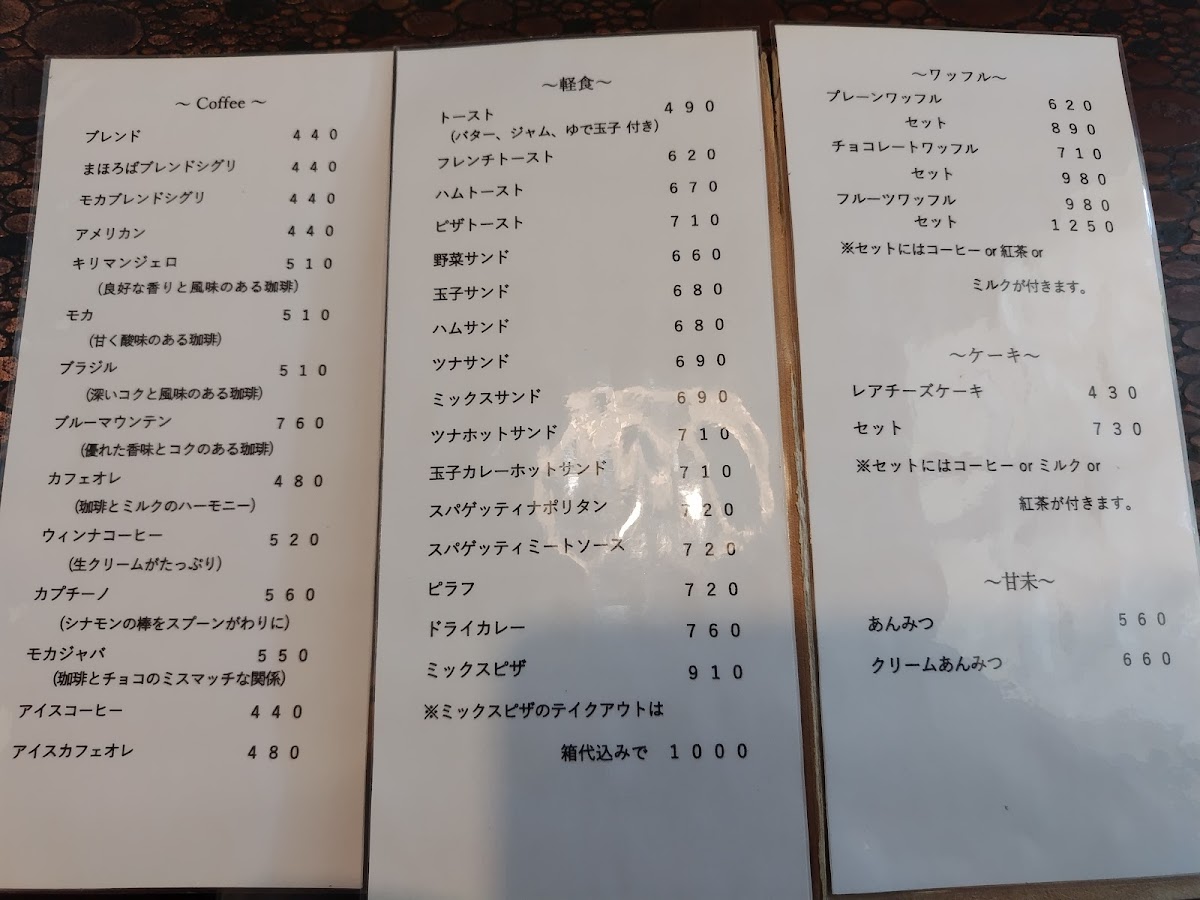 ～ Coffee ～
ブレンド 440
まほろばブレンドシグリ 440
モカブレンドシグリ 440
アメリカン 440
キリマンジェロ 510
(良好な香りと風味のある珈琲)
モカ 510
(甘く酸味のある珈琲)
ブラジル 510
(深いコクと風味のある珈琲)
ブルーマウンテン 760
(優れた香味とコクのある珈琲)
カフェオレ 480
(珈琲とミルクのハーモニー)
ウィンナコーヒー 520
(生クリームがたっぷり)
カプチーノ 560
(シナモンの棒をスプーンがわりに)
モカジャバ 550
(珈琲とチョコのミスマッチな関係)
アイスコーヒー 440
アイスカフェオレ 480
～軽食～
トースト 490
(バター、ジャム、ゆで玉子 付き)
フレンチトースト 620
ハムトースト 670
ピザトースト 710
野菜サンド 660
玉子サンド 680
ハムサンド 680
ツナサンド 690
ミックスサンド 690
ツナホットサンド 710
玉子カレーホットサンド 710
スパゲッティナポリタン 720
スパゲッティミートソース 720
ピラフ 720
ドライカレー 760
ミックスピザ 910
※ミックスピザのテイクアウトは
箱代込みで 1000
～ワッフル～
プレーンワッフル 620
セット 890
チョコレートワッフル 710
セット 980
フルーツワッフル 980
セット 1250
※セットにはコーヒー or 紅茶 or
ミルクが付きます。
～ケーキ～
レアチーズケーキ 430
セット 730
※セットにはコーヒー or ミルク or
紅茶が付きます。
～甘未～
あんみつ 560
クリームあんみつ 660